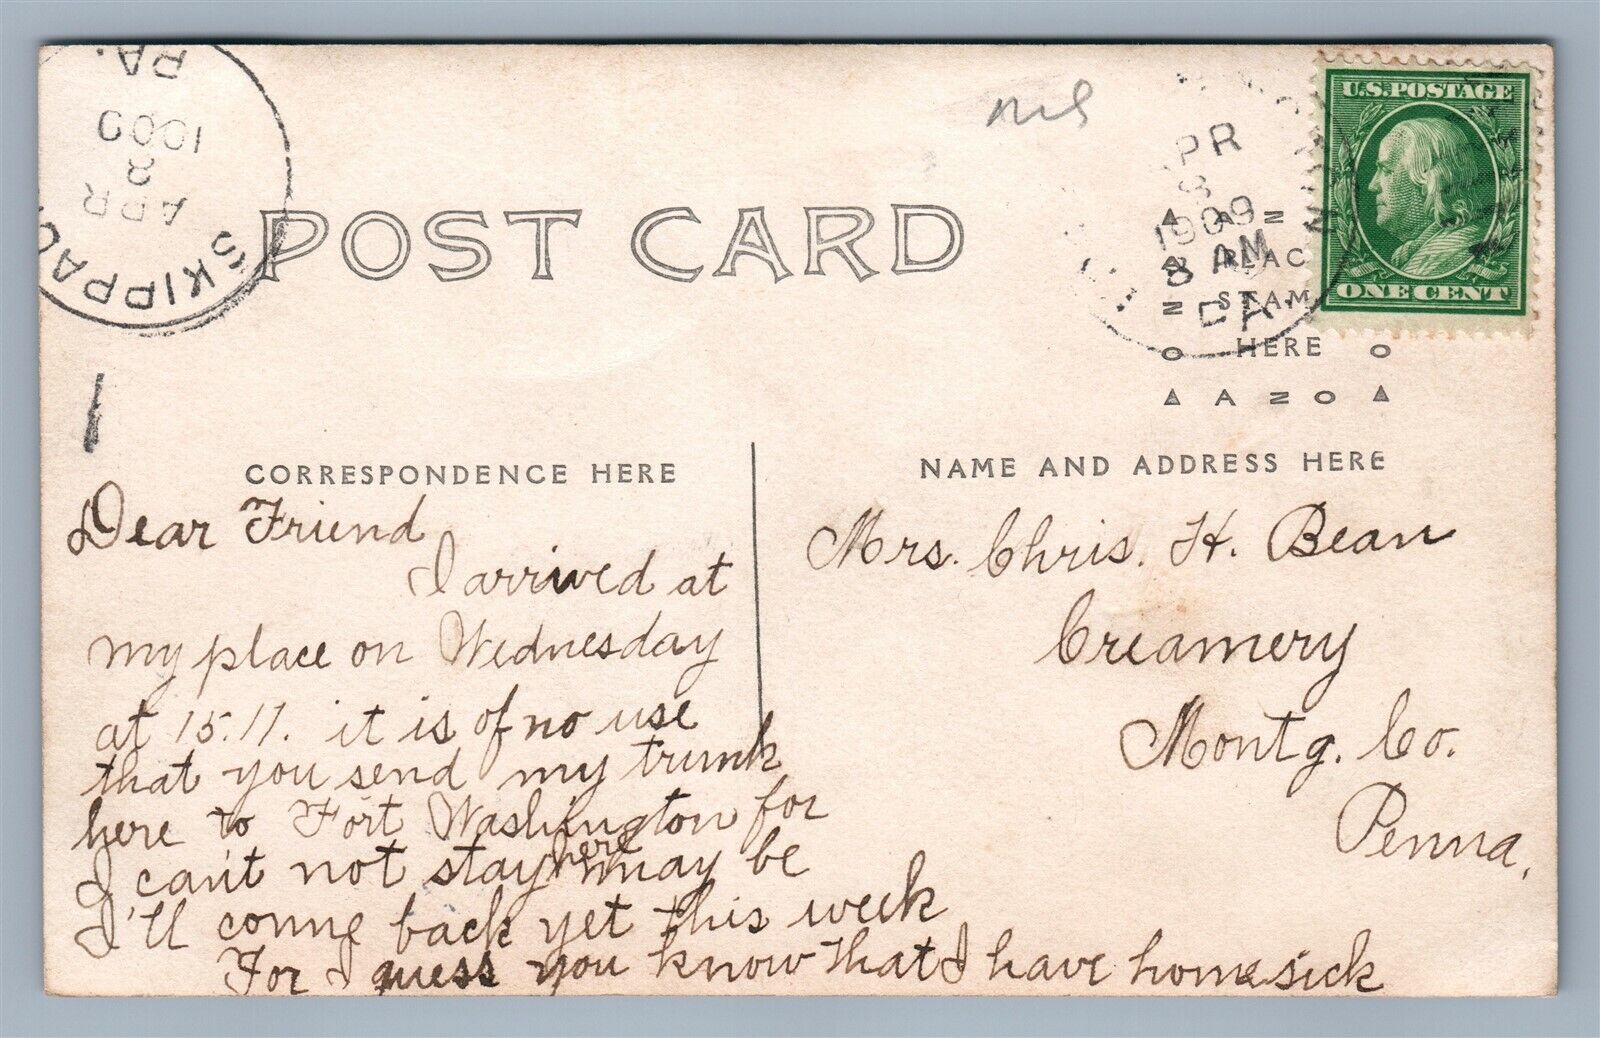 SKIPPACK
APR
2
1909
PA.
POST CARD
APR
3
1909
8 AM
U.S.POSTAGE
ONE CENT
PLACE
STAMP
HERE
AZO
CORRESPONDENCE HERE
NAME AND ADDRESS HERE
Dear Friend
I arrived at
my place on Wednesday
at 15.11. it is of no use
that you send my trunk
here to Fort Washington for
I can't not stay here may be
I'll come back yet this week
For I guess you know that I have homesick
Mrs. Chris. H. Bean
Creamery
Montg. Co.
Penna.